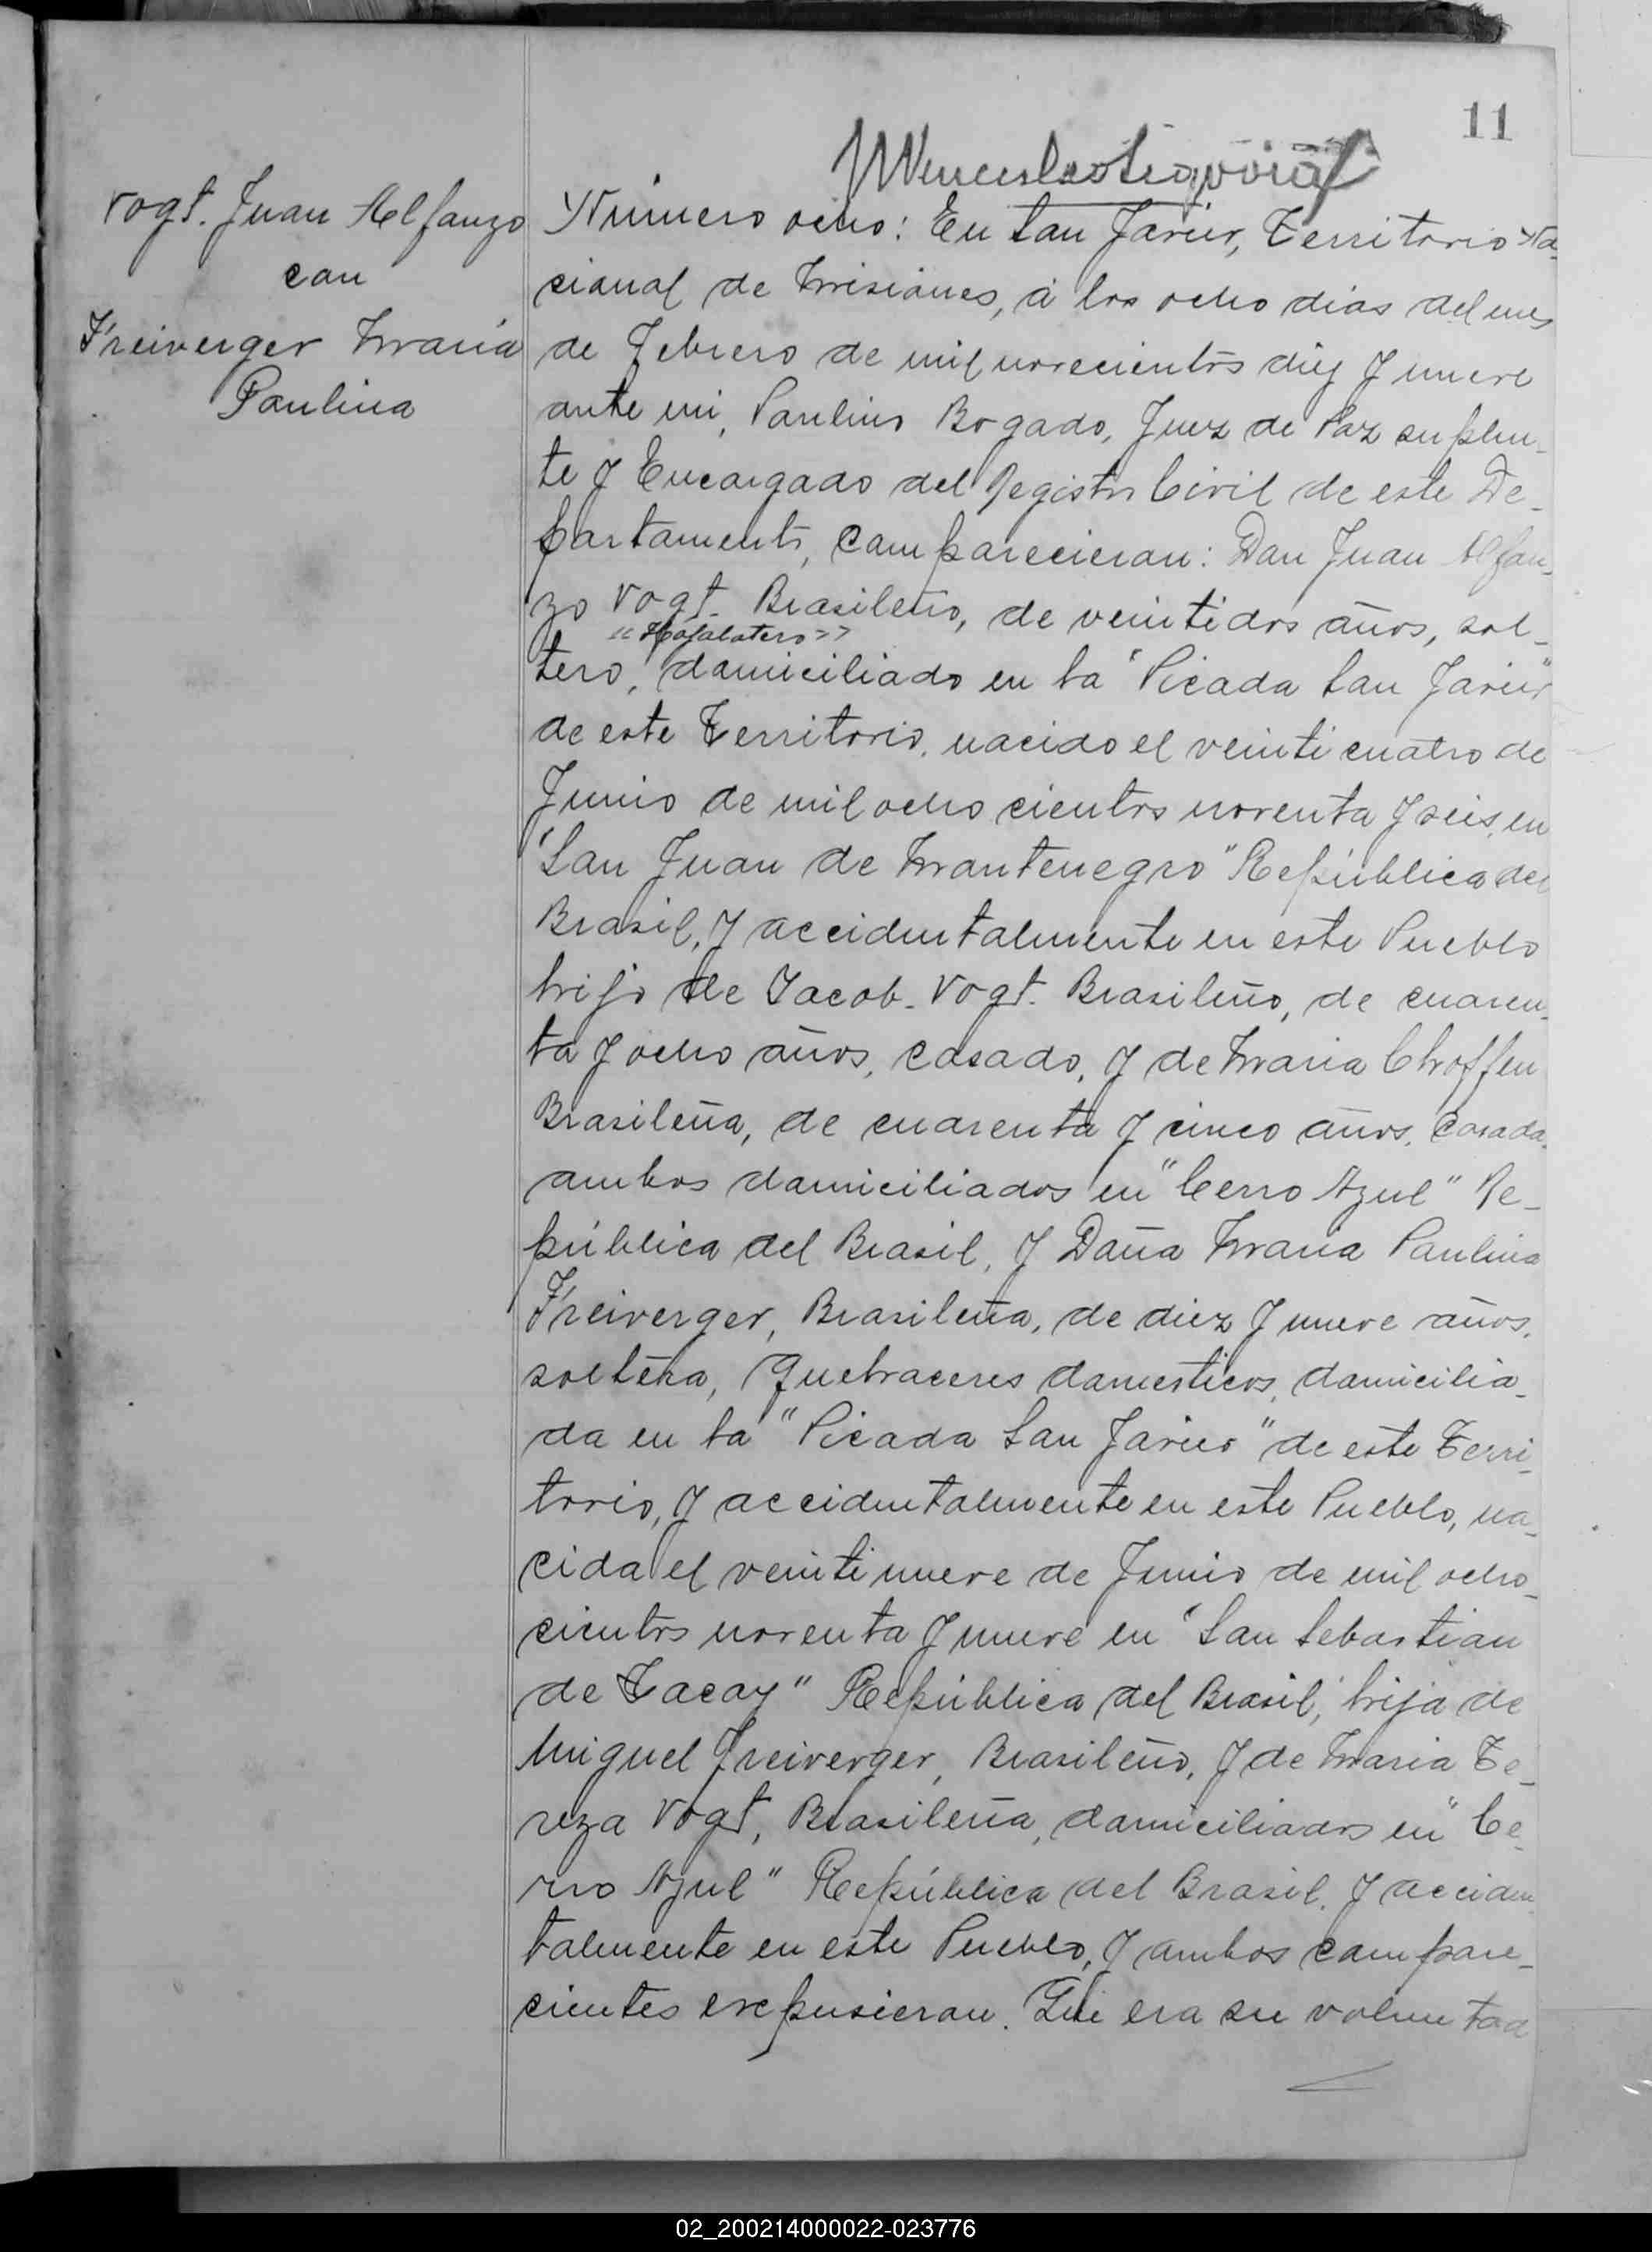 11
Vogt. Juan Alfonzo
con
Freiverger Maria
Paulina
Número ocho: En San Javier, Territorio Na-
cional de Misiones, á los ocho dias del mes
de Febrero de mil novecientos diez y nueve
ante mi, Paulino Bogado, Juez de Paz suplen-
te y Encargado del Registro Civil de este De-
partamento, comparecieron: Don Juan Alfon-
zo Vogt. Brasileño, de veintidos años, sol-
"Hojalatero"
tero, domiciliado en la "Picada San Javier"
de este Territorio, nacido el veinticuatro de
Junio de mil ochocientos noventa y seis, en
"San Juan de Montenegro" República del
Brasil, y accidentalmente en este Pueblo
hijo de Jacob. Vogt. Brasileño, de cuaren-
ta y ocho años, casado, y de Maria Choffen
Brasileña, de cuarenta y cinco años, casada,
ambos domiciliados en "Cerro Azul" Re-
pública del Brasil, y Doña Maria Paulina
Freiverger, Brasileña, de diez y nueve años,
soltera, quehaceres domesticos, domicilia-
da en la "Picada San Javier" de este Terri-
torio, y accidentalmente en este Pueblo, na-
cida el veintinueve de Junio de mil ocho-
cientos noventa y nueve en "San Sebastian
de Cacay" República del Brasil, hija de
Miguel Freiverger, Brasileño, y de Maria Te-
reza Vogt, Brasileña, domiciliados en "Ce-
rro Azul" República del Brasil, y acciden-
talmente en este Pueblo, y ambos compare-
cientes expusieron. Que era su voluntad
02_200214000022-023776